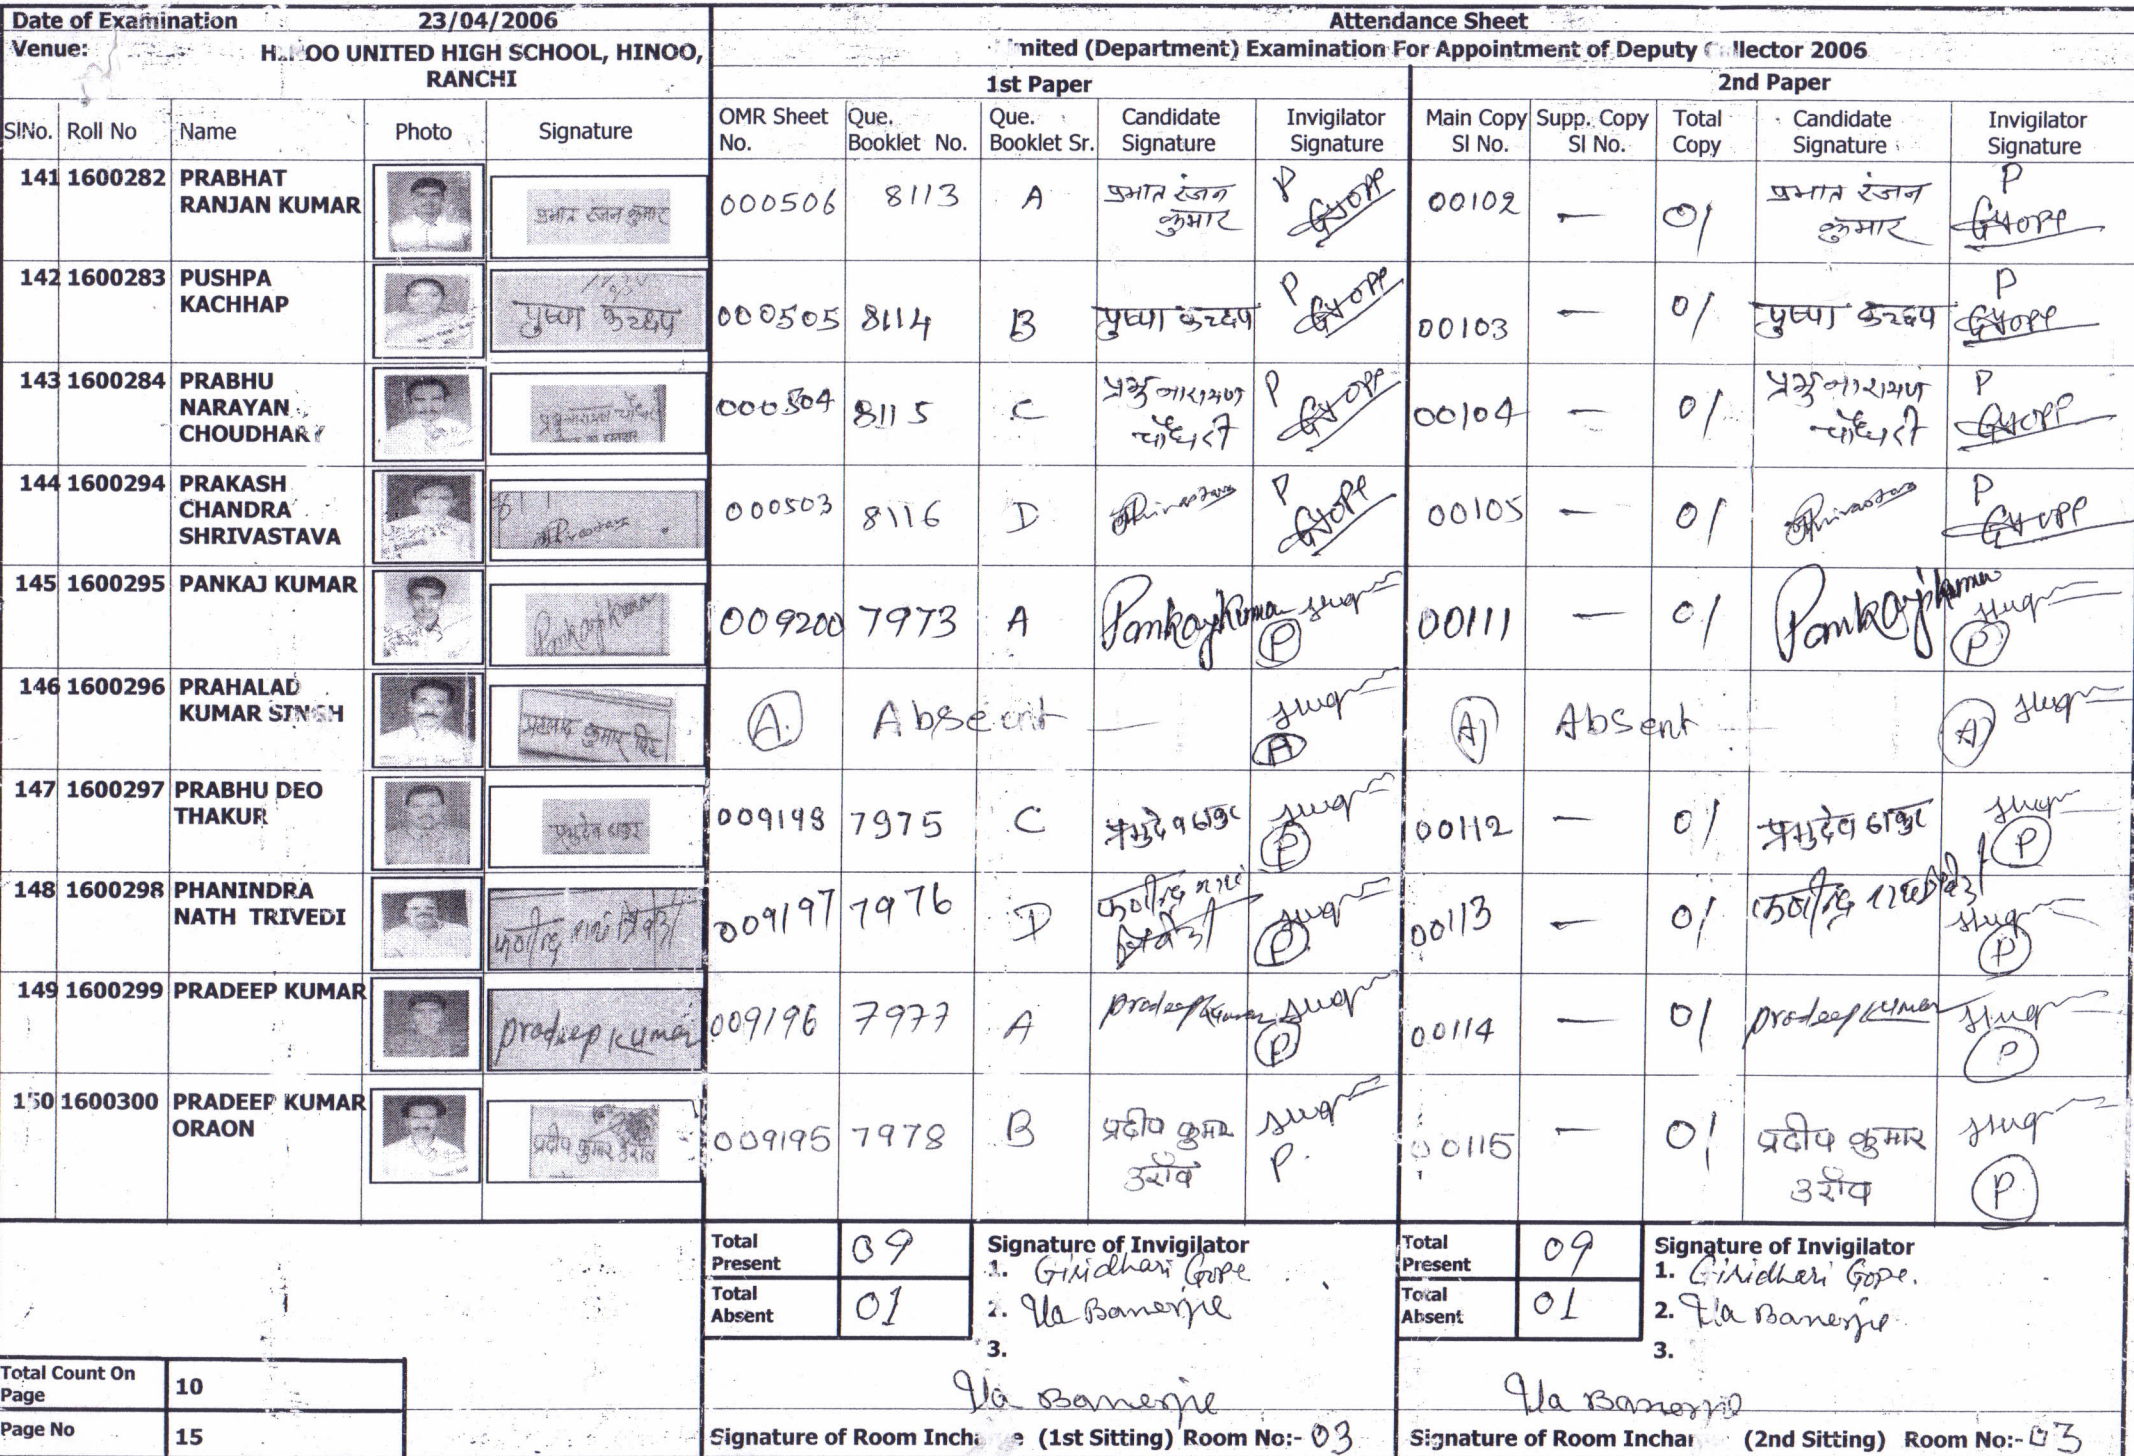 Date of Examination 23/04/2006 Attendance Sheet
Venue: OO UNITED HIGH SCHOOL, HINOO, RANCHI
mited (Department) Examination For Appointment of Deputy llector 2006
1st Paper 2nd Paper
SlNo. Roll No Name Photo Signature OMR Sheet No. Que. Booklet No. Que. Booklet Sr. Candidate Signature Invigilator Signature Main Copy Sl No. Supp. Copy Sl No. Total Copy Candidate Signature Invigilator Signature
141 1600282 PRABHAT RANJAN KUMAR प्रभात रंजन कुमार 000506 8113 A प्रभात रंजन कुमार P GYOPE 00102 — 01 प्रभात रंजन कुमार P GYOPE
142 1600283 PUSHPA KACHHAP पुष्पा कच्छप 000505 8114 B पुष्पा कच्छप P GYOPE 00103 — 01 पुष्पा कच्छप P GYOPE
143 1600284 PRABHU NARAYAN CHOUDHARY 000504 8115 C प्रभु नारायण चौधरी P GYOPE 00104 — 01 प्रभु नारायण चौधरी P GYOPE
144 1600294 PRAKASH CHANDRA SHRIVASTAVA 000503 8116 D P GYOPE 00105 — 01 P GYOPE
145 1600295 PANKAJ KUMAR Pankaj Kumar 009200 7973 A Pankaj Kumar P 00111 — 01 Pankaj Kumar P
146 1600296 PRAHALAD KUMAR SINGH प्रहलाद कुमार सिंह A. Absent — A A Absent A
147 1600297 PRABHU DEO THAKUR प्रभुदेव ठाकुर 009198 7975 C प्रभुदेव ठाकुर P 00112 — 01 प्रभुदेव ठाकुर P
148 1600298 PHANINDRA NATH TRIVEDI फणीन्द्र नाथ त्रिवेदी 009197 7976 D फणीन्द्र नाथ त्रिवेदी P 00113 — 01 फणीन्द्र नाथ त्रिवेदी P
149 1600299 PRADEEP KUMAR pradeep kumar 009196 7977 A pradeep kumar P 00114 — 01 pradeep kumar P
150 1600300 PRADEEP KUMAR ORAON प्रदीप कुमार उराँव 009195 7978 B प्रदीप कुमार उराँव P. 00115 — 01 प्रदीप कुमार उराँव P
Total Present 09 Signature of Invigilator Total Present 09 Signature of Invigilator
1. Giridhari Gope 1. Giridhari Gope.
Total Absent 01 2. Ila Banerjie Total Absent 01 2. Ila Banerjie
3. 3.
Total Count On Page 10
Ila Banerjie Ila Banerjie
Page No 15
Signature of Room Incha e (1st Sitting) Room No:- 03 Signature of Room Inchar (2nd Sitting) Room No:- 03